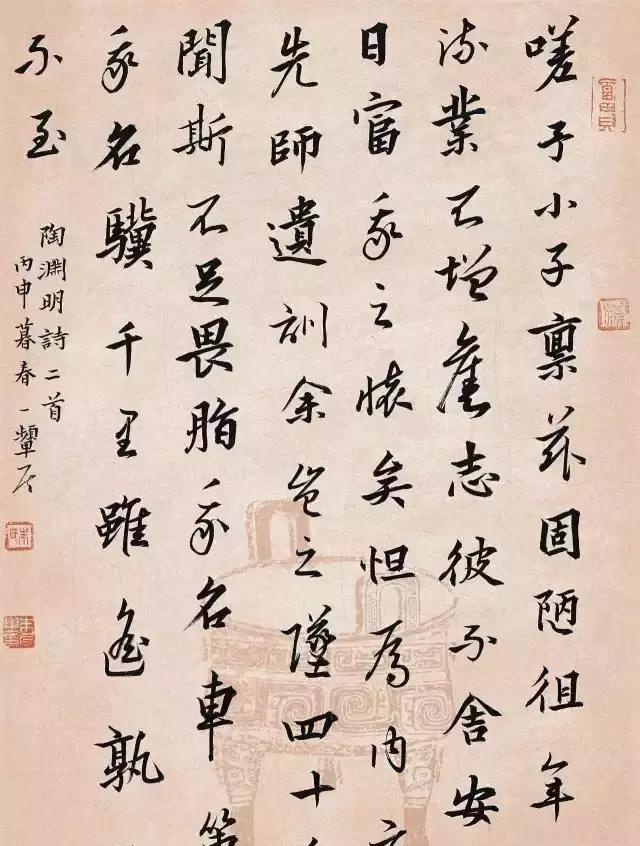 嗟予小子稟茲固陋徂年
流業不增舊志彼不舍安
日富我之懷矣怛焉內
先師遺訓余豈之墜四十
聞斯不足畏脂我名車策
我名驥千里雖遙孰
不至
陶淵明詩二首
丙申暮春一